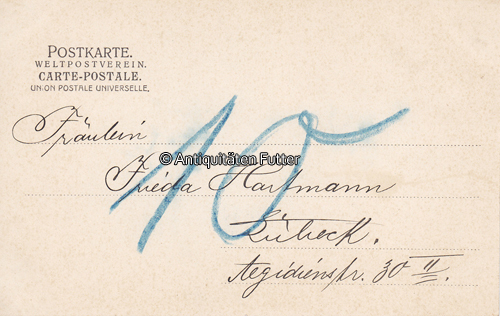 POSTKARTE.
WELTPOSTVEREIN.
CARTE-POSTALE.
UNION POSTALE UNIVERSELLE,
10
Fräulein
© Antiquitäten Futter
Frieda Hartmann
Lübeck.
Aegidienstr. 30 II.